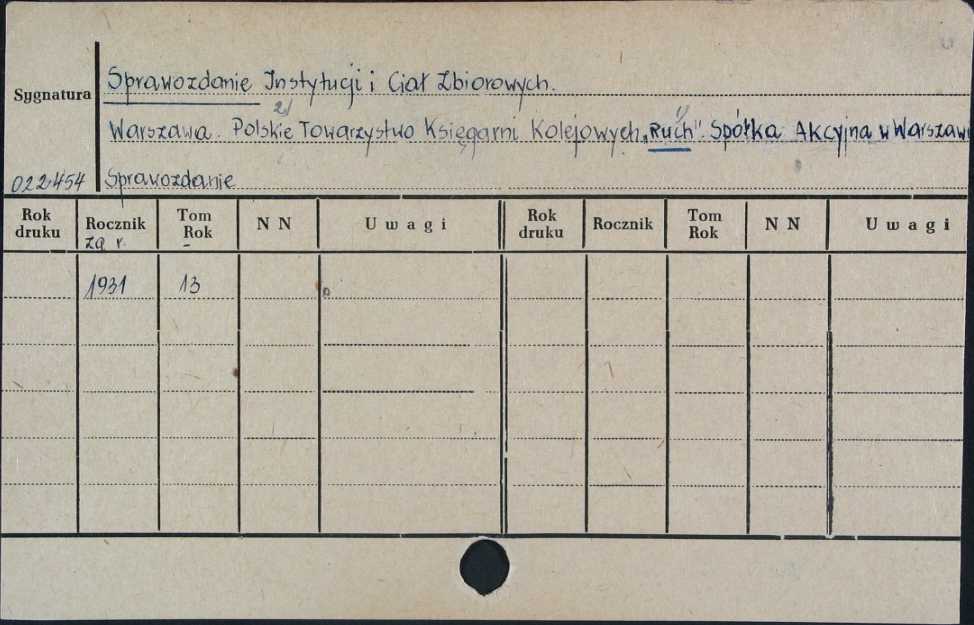 Sprawozdanie Instytucji i Ciał Zbiorowych.
Sygnatura
2/ 1/
Warszawa. Polskie Towarzystwo Księgarni Kolejowych „Ruch" Spółka Akcyjna w Warszawi
022454 Sprawozdanie
Rok druku Rocznik Tom Rok N N Uwagi Rok druku Rocznik Tom Rok N N Uwagi
za r. -
1931 13